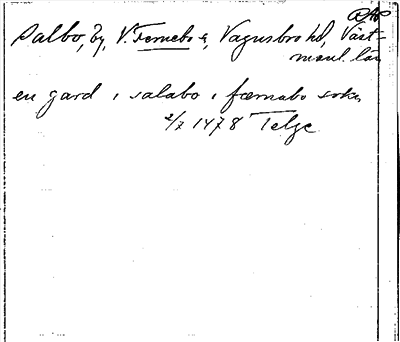 RAP
Salbo, by, V. Fernebo s, Vagnsbro hd, Väst-
manl. län
en gard i salabo i færnabo sokn
2/7 1478 Telge